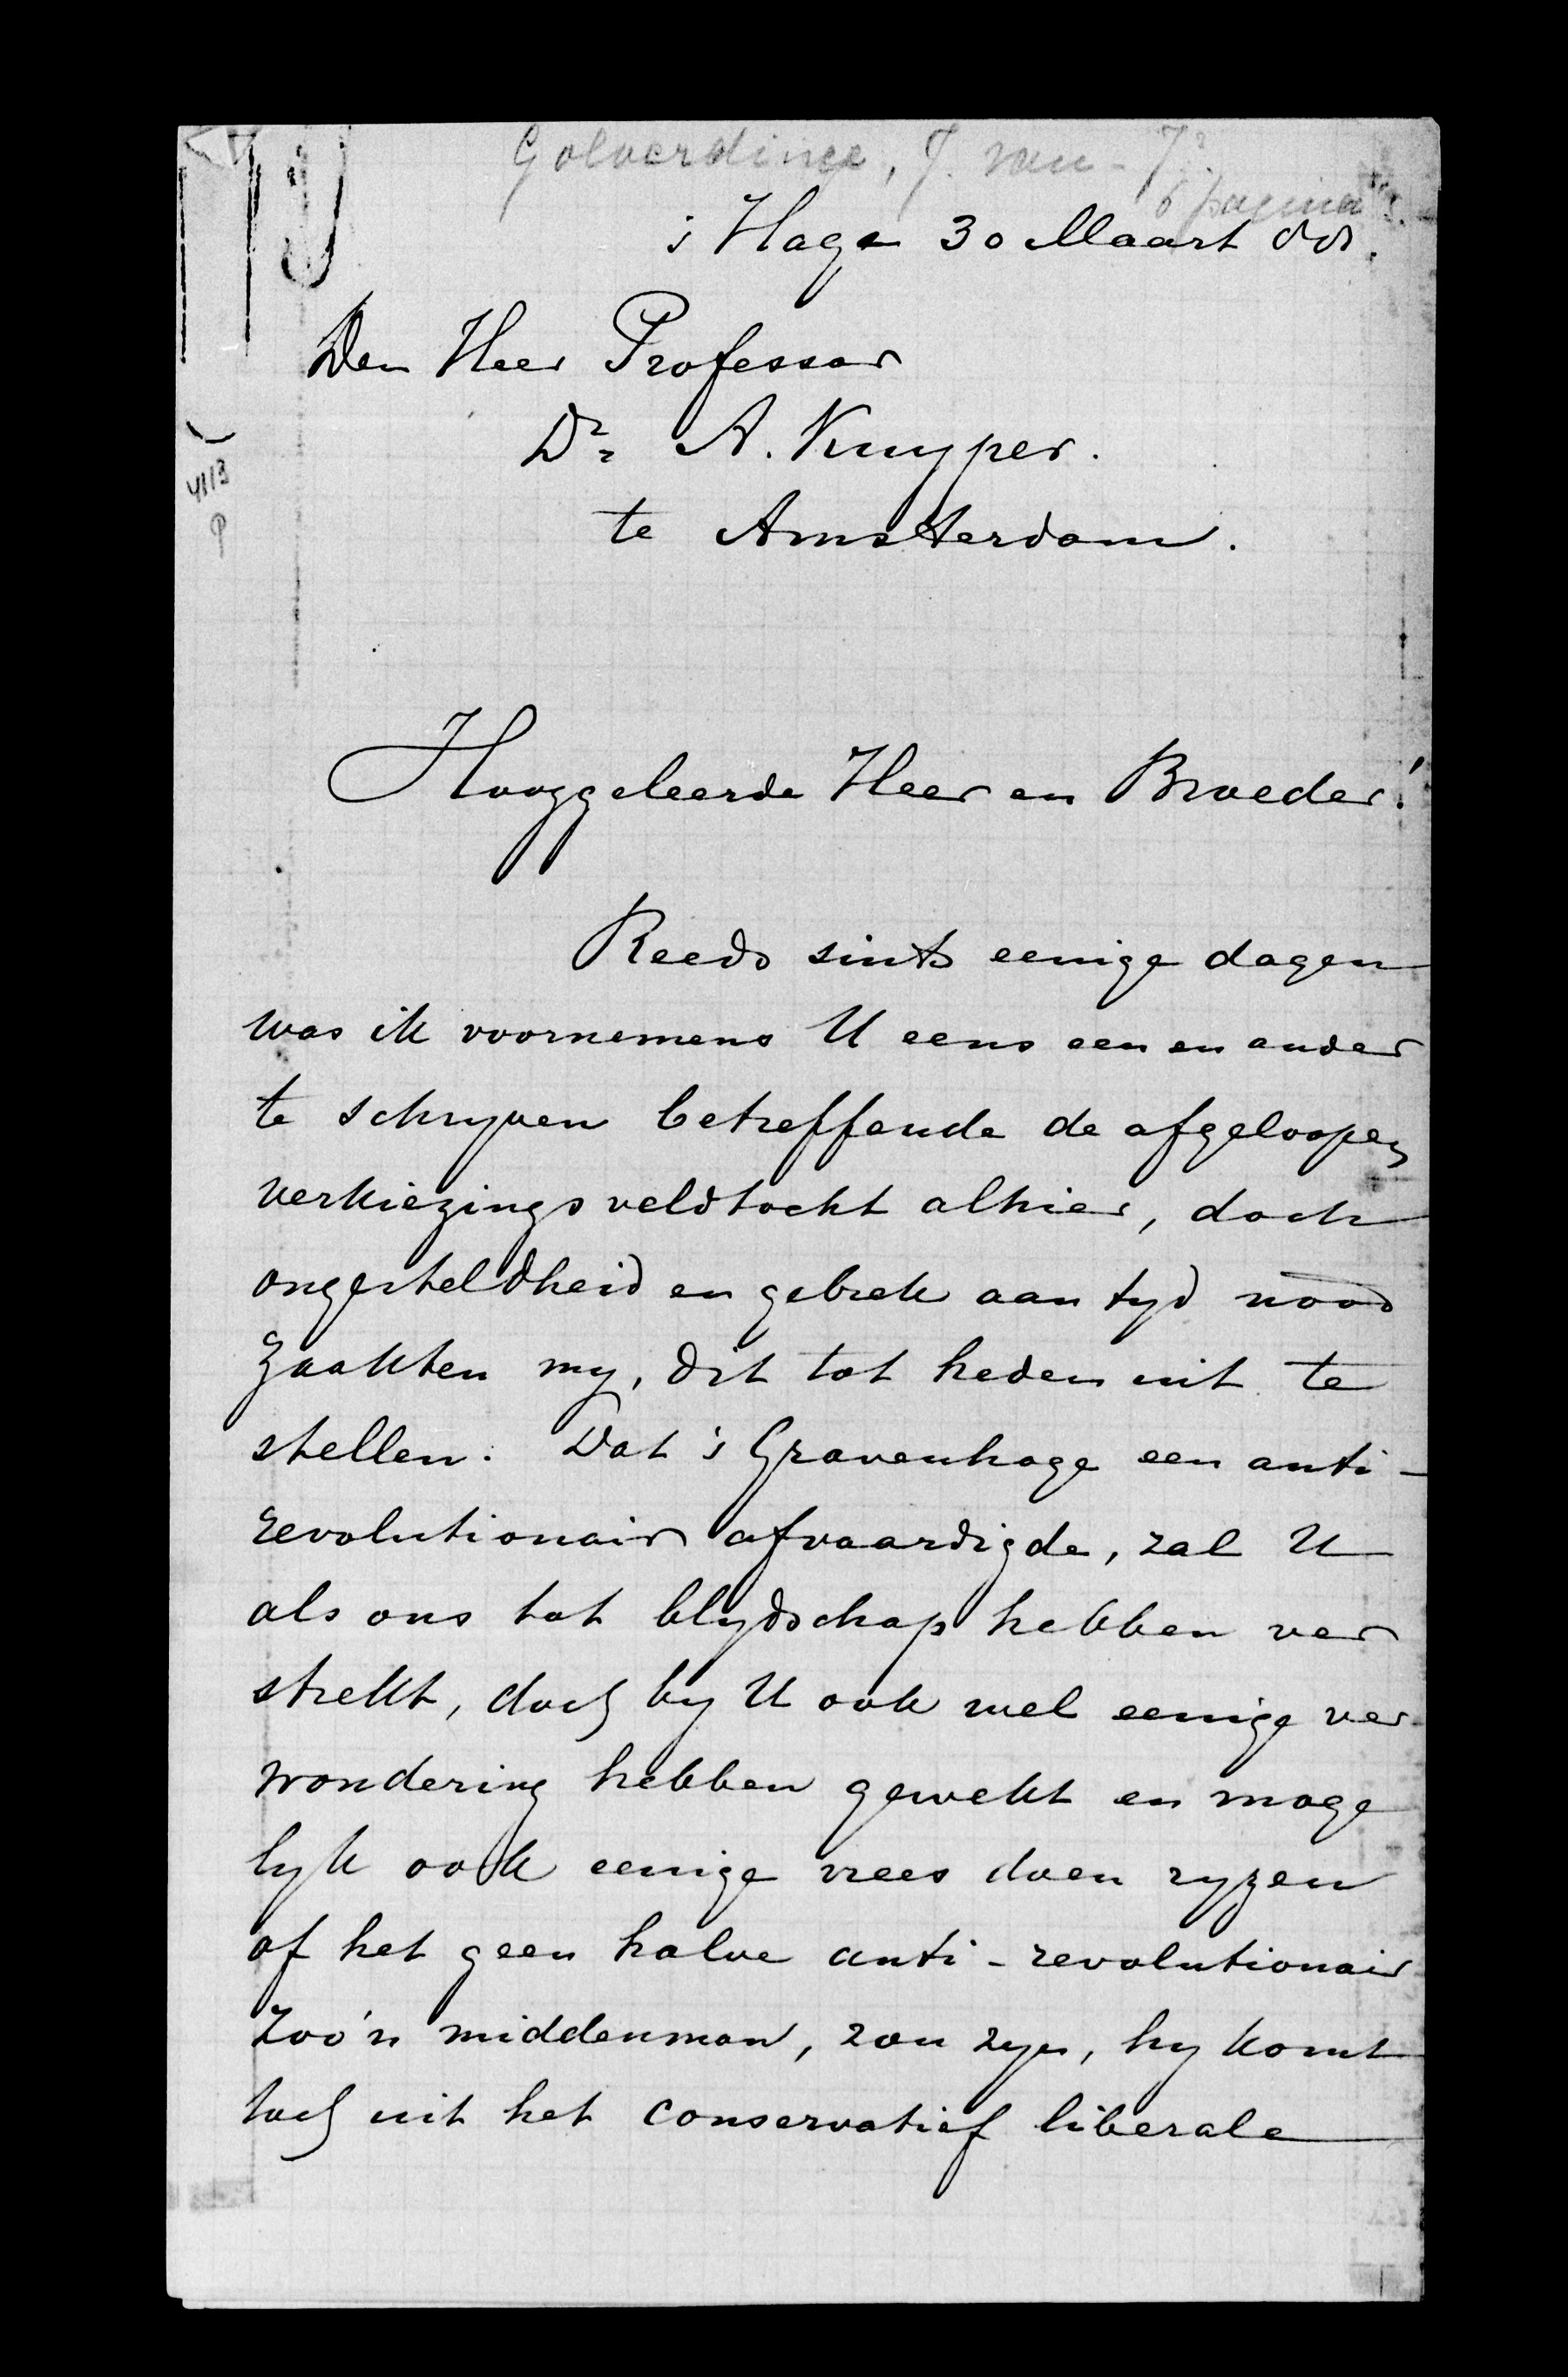 Golverdinge, J. van - 7?
6 pagina's.
's Hage 30 Maart 88.
4113
P
Den Heer Professor
Dr. A. Kuyper.
te Amsterdam.
Hooggeleerde Heer en Broeder!
Reeds sints eenige dagen
was ik voornemens U eens een en ander
te schryven betreffende de afgeloopen
verkiezingsveldtocht alhier, doch
ongesteldheid en gebrek aan tyd nood
zaakten my, dit tot heden uit te
stellen. Dat 's Gravenhage een anti-
revolutionair afvaardigde, zal U
als ons tot blydschap hebben ver
strekt, doch by U ook wel eenige ver
wondering hebben gewekt en moge
lyk ook eenige vrees doen ryzen
of het geen halve anti-revolutionair
zoo'n middenman, zou zyn, hy komt
toch uit het conservatief liberale